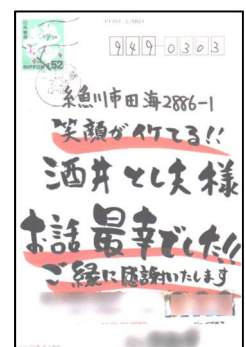 POST CARD
日本郵便
52
NIPPON
949-0303
糸魚川市田海2886-1
笑顔がイケてる!!
酒井とし夫様
お話最幸でした!!
ご縁に感謝いたします